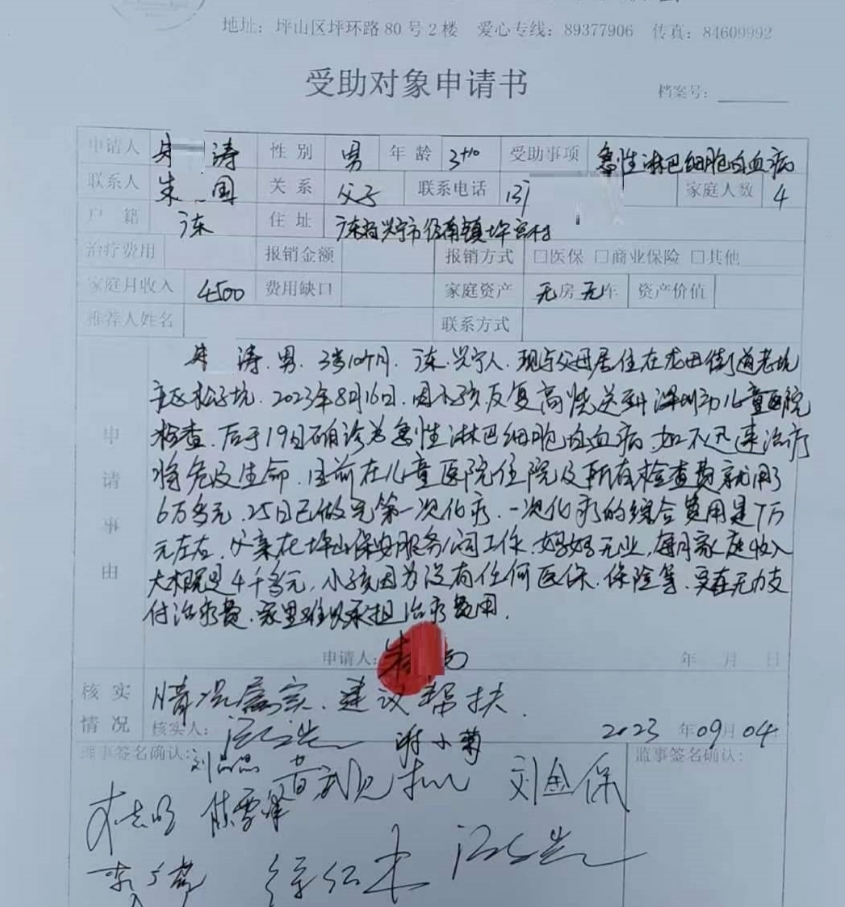 地址：坪山区坪环路80号2楼 爱心专线：89377906 传真：84609992
受助对象申请书
档案号：
申请人 朱 涛 性别 男 年龄 3+10 受助事项 急性淋巴细胞白血病
联系人 朱 国 关系 父子 联系电话 13 家庭人数 4
户籍 广东 住址 广东省兴宁市径南镇村
治疗费用 报销金额 报销方式 □医保 □商业保险 □其他
家庭月收入 4500 费用缺口 家庭资产 无房 无车 资产价值
推荐人姓名 联系方式
申请事由
朱 涛，男，3岁10个月，广东兴宁人，现与父母居住在龙田街道老坑
社区松子坑，2023年8月16日，因小孩反复高烧送到深圳市儿童医院
检查，后于19日确诊为急性淋巴细胞白血病，如不迅速治疗
将危及生命，目前在儿童医院住院及所有检查费就用了
6万多元，25日已做完第一次化疗，一次化疗的综合费用是7万
元左右，父亲在坪山保安服务公司工作，妈妈无业，每月家庭收入
大概是4千多元，小孩因为没有任何医保、保险等，实在无力支
付治疗费，家里难以承担治疗费用。
申请人：朱 国 年 月 日
核实情况
情况属实，建议帮扶。
核实人： 谢小菊 2023年09月04
理事签名确认： 监事签名确认：
刘金保